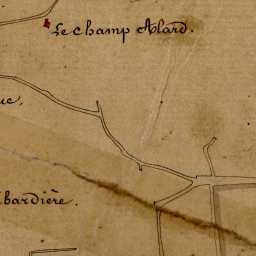 Le champ Alard.
uc.
bardière.